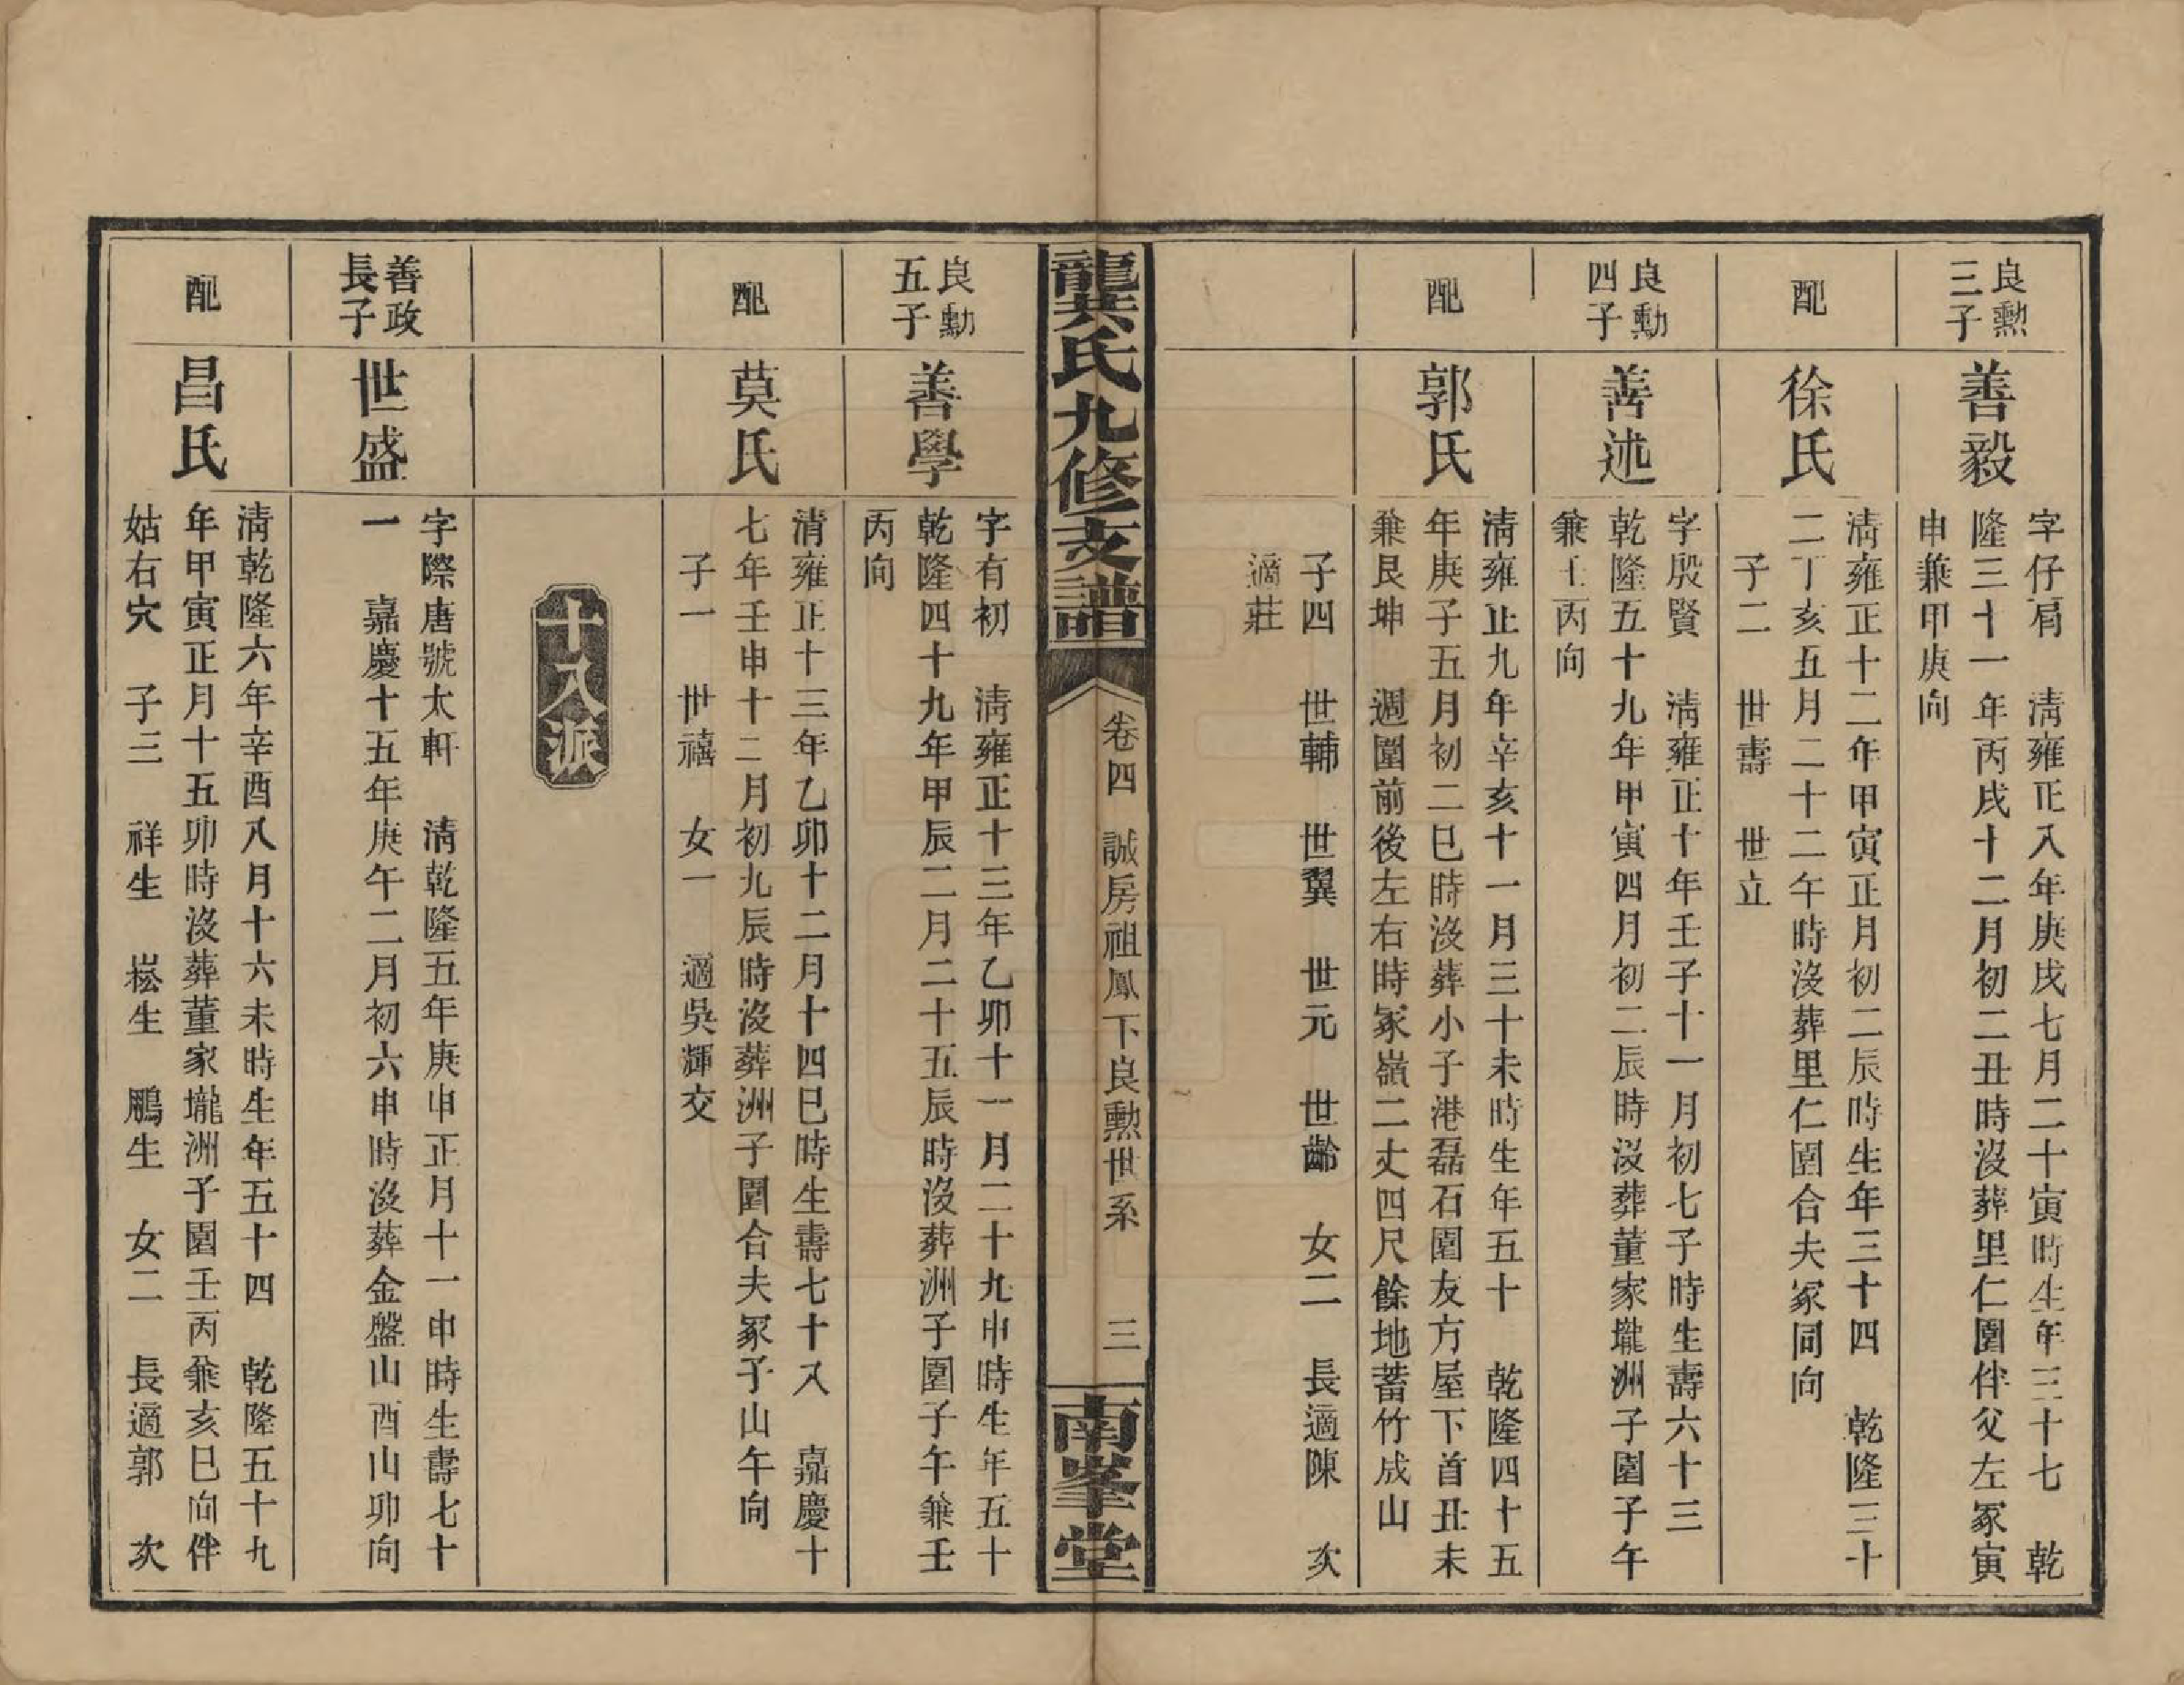 良勲
三子
善毅
字仔肩　清雍正八年庚戌七月二十寅時生年三十七　乾
隆三十一年丙戌十二月初二丑時沒葬里仁園伴父左冢寅
申兼甲庚向
配
徐氏
清雍正十二年甲寅正月初二辰時生年三十四　乾隆三十
二丁亥五月二十二午時沒葬里仁園合夫冢同向
子二　世壽　世立
良勳
四子
善述
字殷賢　清雍正十年壬子十一月初七子時生壽六十三
乾隆五十九年甲寅四月初二辰時沒葬董家壠洲子園子午
兼壬丙向
配
郭氏
清雍正九年辛亥十一月三十未時生年五十　乾隆四十五
年庚子五月初二巳時沒葬小子港磊石園友方屋下首丑未
兼艮坤　週圍前後左右時冢嶺二丈四尺餘地蓄竹成山
子四　世輔　世翼　世元　世齡　女二　長適陳　次
適莊
龍洪氏九修支譜
卷四　誠房祖鳳下良勲世系　三
南峯堂
良勳
五子
善學
字有初　清雍正十三年乙卯十一月二十九申時生年五十
乾隆四十九年甲辰二月二十五辰時沒葬洲子園子午兼壬
丙向
配
莫氏
清雍正十三年乙卯十二月十四巳時生壽七十八　嘉慶十
七年壬申十二月初九辰時沒葬洲子園合夫冢子山午向
子一　世禧　女一　適吳輝交
十八派
善政
長子
世盛
字際唐號太軒　清乾隆五年庚申正月十一申時生壽七十
一　嘉慶十五年庚午二月初六申時沒葬金盤山酉山卯向
配
昌氏
清乾隆六年辛酉八月十六未時生年五十四　乾隆五十九
年甲寅正月十五卯時沒葬董家壠洲子園壬丙兼亥巳向伴
姑右穴　子三　祥生　崧生　鵬生　女二　長適郭　次